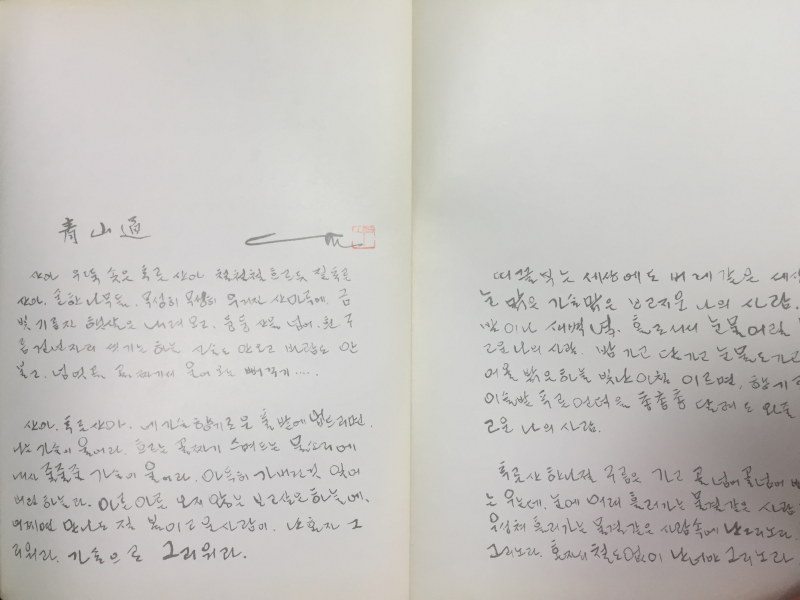 靑山道
산아 우뚝 솟은 푸른 산아 철철철 흐르듯 짙푸른
산아. 숱한 나무들, 무성히 무성히 우거진 산마루에, 금
빛 기름진 햇살은 내려오고, 둥둥 산을 넘어, 흰 구
름 건넌 자리 씻기는 하늘. 사슴도 안 오고 바람도 안
불고. 넘엇 골 골짜기서 울어 오는 뻐꾸기....
산아. 푸른 산아. 네 가슴 향기로운 풀밭에 엎드리면,
나는 가슴이 울어라. 흐르는 골짜기 스며드는 물소리에
내사 줄줄줄 가슴이 울어라. 아득히 가버린 것 잊어
버린 하늘과, 아른 아른 오지 않는 보고 싶은 하늘에,
어쩌면 만나도 질 볼이 고운 사람이, 난 혼자 그
리워라. 가슴으로 그리워라.
티끌 부는 세상에도 벌레 같은 세상
눈 맑은 가슴 맑은 보고지운 나의 사람.
밤이나 새벽녘, 홀로 서서 눈물 어린
고운 나의 사람. 달 가고 밤 가고 눈물도 가고
어 올 밝은 하늘 빛난 아침 이르면, 향기
이슬밭 푸른 언덕을 총총총 달려도 와줄
고운 나의 사람.
푸른 산 한나절 구름은 가고 골 넘어 골 넘어
는 우는데, 눈에 어려 흘러가는 물결 같은 사람
아우성쳐 흘러가는 물결 같은 사람 속에 난 그리노라.
그리노라. 혼자서 철도 없이 난 너만 그리노라